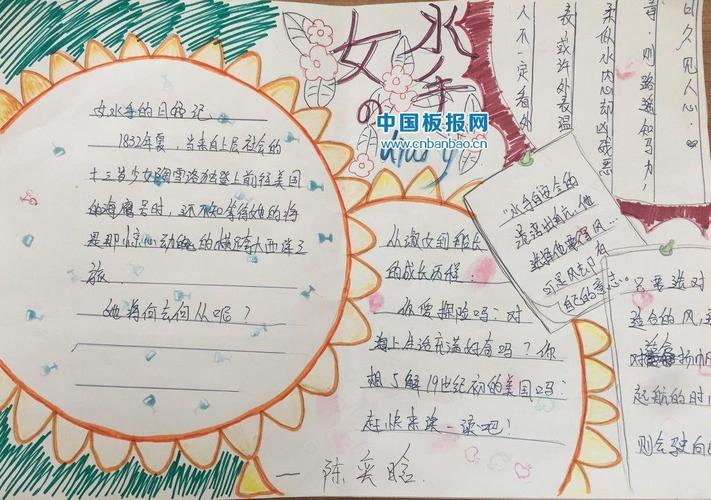 女水手
の
diary
中国板报网
www.cnbanbao.cn
女水手的日记
1832年夏,当来自上层社会的
十三岁少女雪洛
登上前往美国
的海鹰号时,还不知等待她的将
是那惊心动魄的横渡大西洋之
旅
她将何去何从呢?
从淑女到船长
的成长历程.
你爱探险吗?对
海上生活充满好奇吗?你
想了解19世纪初的美国吗?
赶快来读一读吧!
一陈奕晗
"水手自
的
他
选择他
风…
可是风
有
自己的意志."
只要选对
适合的风,
扬帆
起航的时
则会驶向
人不一定看外
表,或许外表温
柔似水内心却凶残恶
毒,则路遥知马力,
日久见人心.